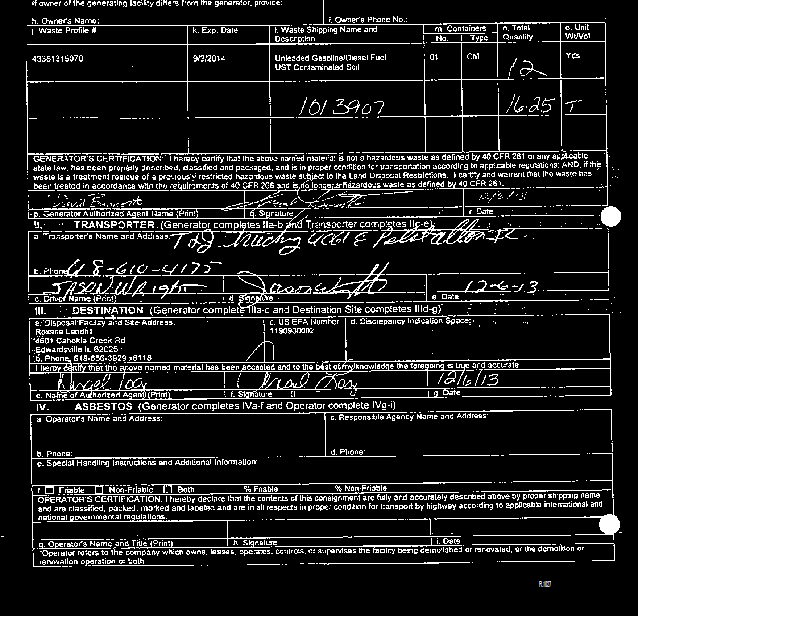 If owner of the generating facility differs from the generator, provide:
h. Owner's Name: i. Owner's Phone No.:
j. Waste Profile # k. Exp. Date l. Waste Shipping Name and Description m. Containers No. Type n. Total Quantity o. Unit Wt/Vol
43351215070 9/2/2014 Unleaded Gasoline/Diesel Fuel 01 CM 12 Yds
UST Contaminated Soil
1013907 16.25 T
GENERATOR'S CERTIFICATION: I hereby certify that the above named material is not a hazardous waste as defined by 40 CFR 261 or any applicable
state law, has been properly described, classified and packaged, and is in proper condition for transportation according to applicable regulations; AND, if the
waste is a treatment residue of a previously restricted hazardous waste subject to the Land Disposal Restrictions. I certify and warrant that the waste has
been treated in accordance with the requirements of 40 CFR 268 and is no longer a hazardous waste as defined by 40 CFR 261.
p. Generator Authorized Agent Name (Print) q. Signature r. Date
II. TRANSPORTER (Generator completes IIa-b and Transporter completes IIc-e)
a. Transporter's Name and Address:
b. Phone: 618-610-4175
JASON Wright 12-6-13
c. Driver Name (Print) d. Signature e. Date
III. DESTINATION (Generator complete IIIa-c and Destination Site completes IIId-g)
a. Disposal Facility and Site Address: c. US EPA Number d. Discrepancy Indication Space:
Roxana Landfill 1190900002
4601 Cahokia Creek Rd
Edwardsville IL 62025
b. Phone: 618-656-3929 x6118
I hereby certify that the above named material has been accepted and to the best of my knowledge the foregoing is true and accurate
12/6/13
e. Name of Authorized Agent (Print) f. Signature g. Date
IV. ASBESTOS (Generator completes IVa-f and Operator complete IVg-i)
a. Operator's Name and Address: c. Responsible Agency Name and Address:
b. Phone: d. Phone:
e. Special Handling Instructions and Additional Information:
f. Friable Non-Friable Both % Friable % Non-Friable
OPERATOR'S CERTIFICATION: I hereby declare that the contents of this consignment are fully and accurately described above by proper shipping name
and are classified, packed, marked and labeled and are in all respects in proper condition for transport by highway according to applicable international and
national governmental regulations.
g. Operator's Name and Title (Print) h. Signature i. Date
*Operator refers to the company which owns, leases, operates, controls, or supervises the facility being demolished or renovated, or the demolition or
renovation operation or both